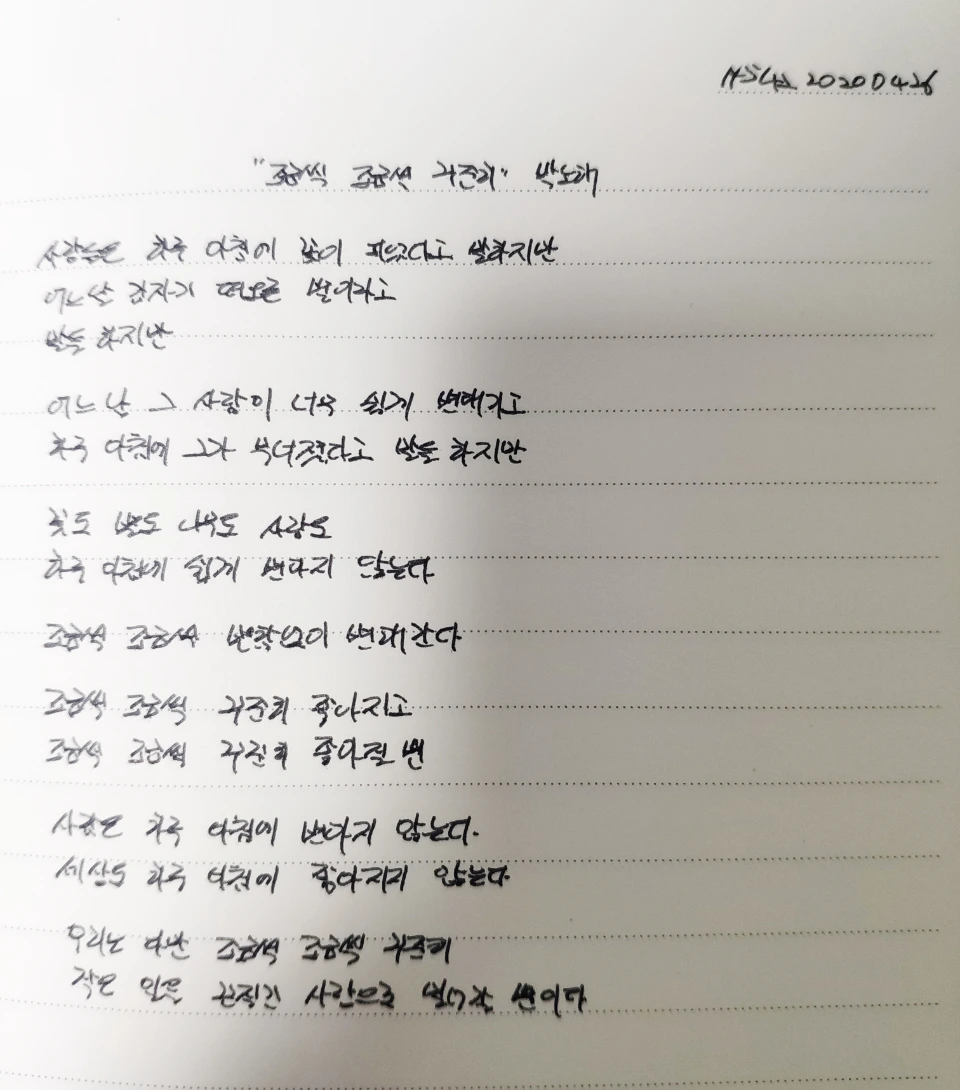 20200426
"조금씩 조금씩 꾸준히" 박노해
사람들은 하루 아침에 꽃이 피었다고 말하지만
어느날 갑자기 떠오른 별이라고
말들 하지만
어느날 그 사람이 너무 쉽게 변해가고
하루 아침에 그가 무너졌다고 말들 하지만
꽃도 별도 나무도 사랑도
하루 아침에 쉽게 변하지 않는다
조금씩 조금씩 변함없이 변해간다
조금씩 조금씩 꾸준히 나빠지고
조금씩 조금씩 꾸준히 좋아질 뿐
사람은 하루 아침에 변하지 않는다.
세상도 하루 아침에 좋아지지 않는다
우리는 다만 조금씩 조금씩 꾸준히
작은 일을 끈질긴 사랑으로 밀어갈 뿐이다